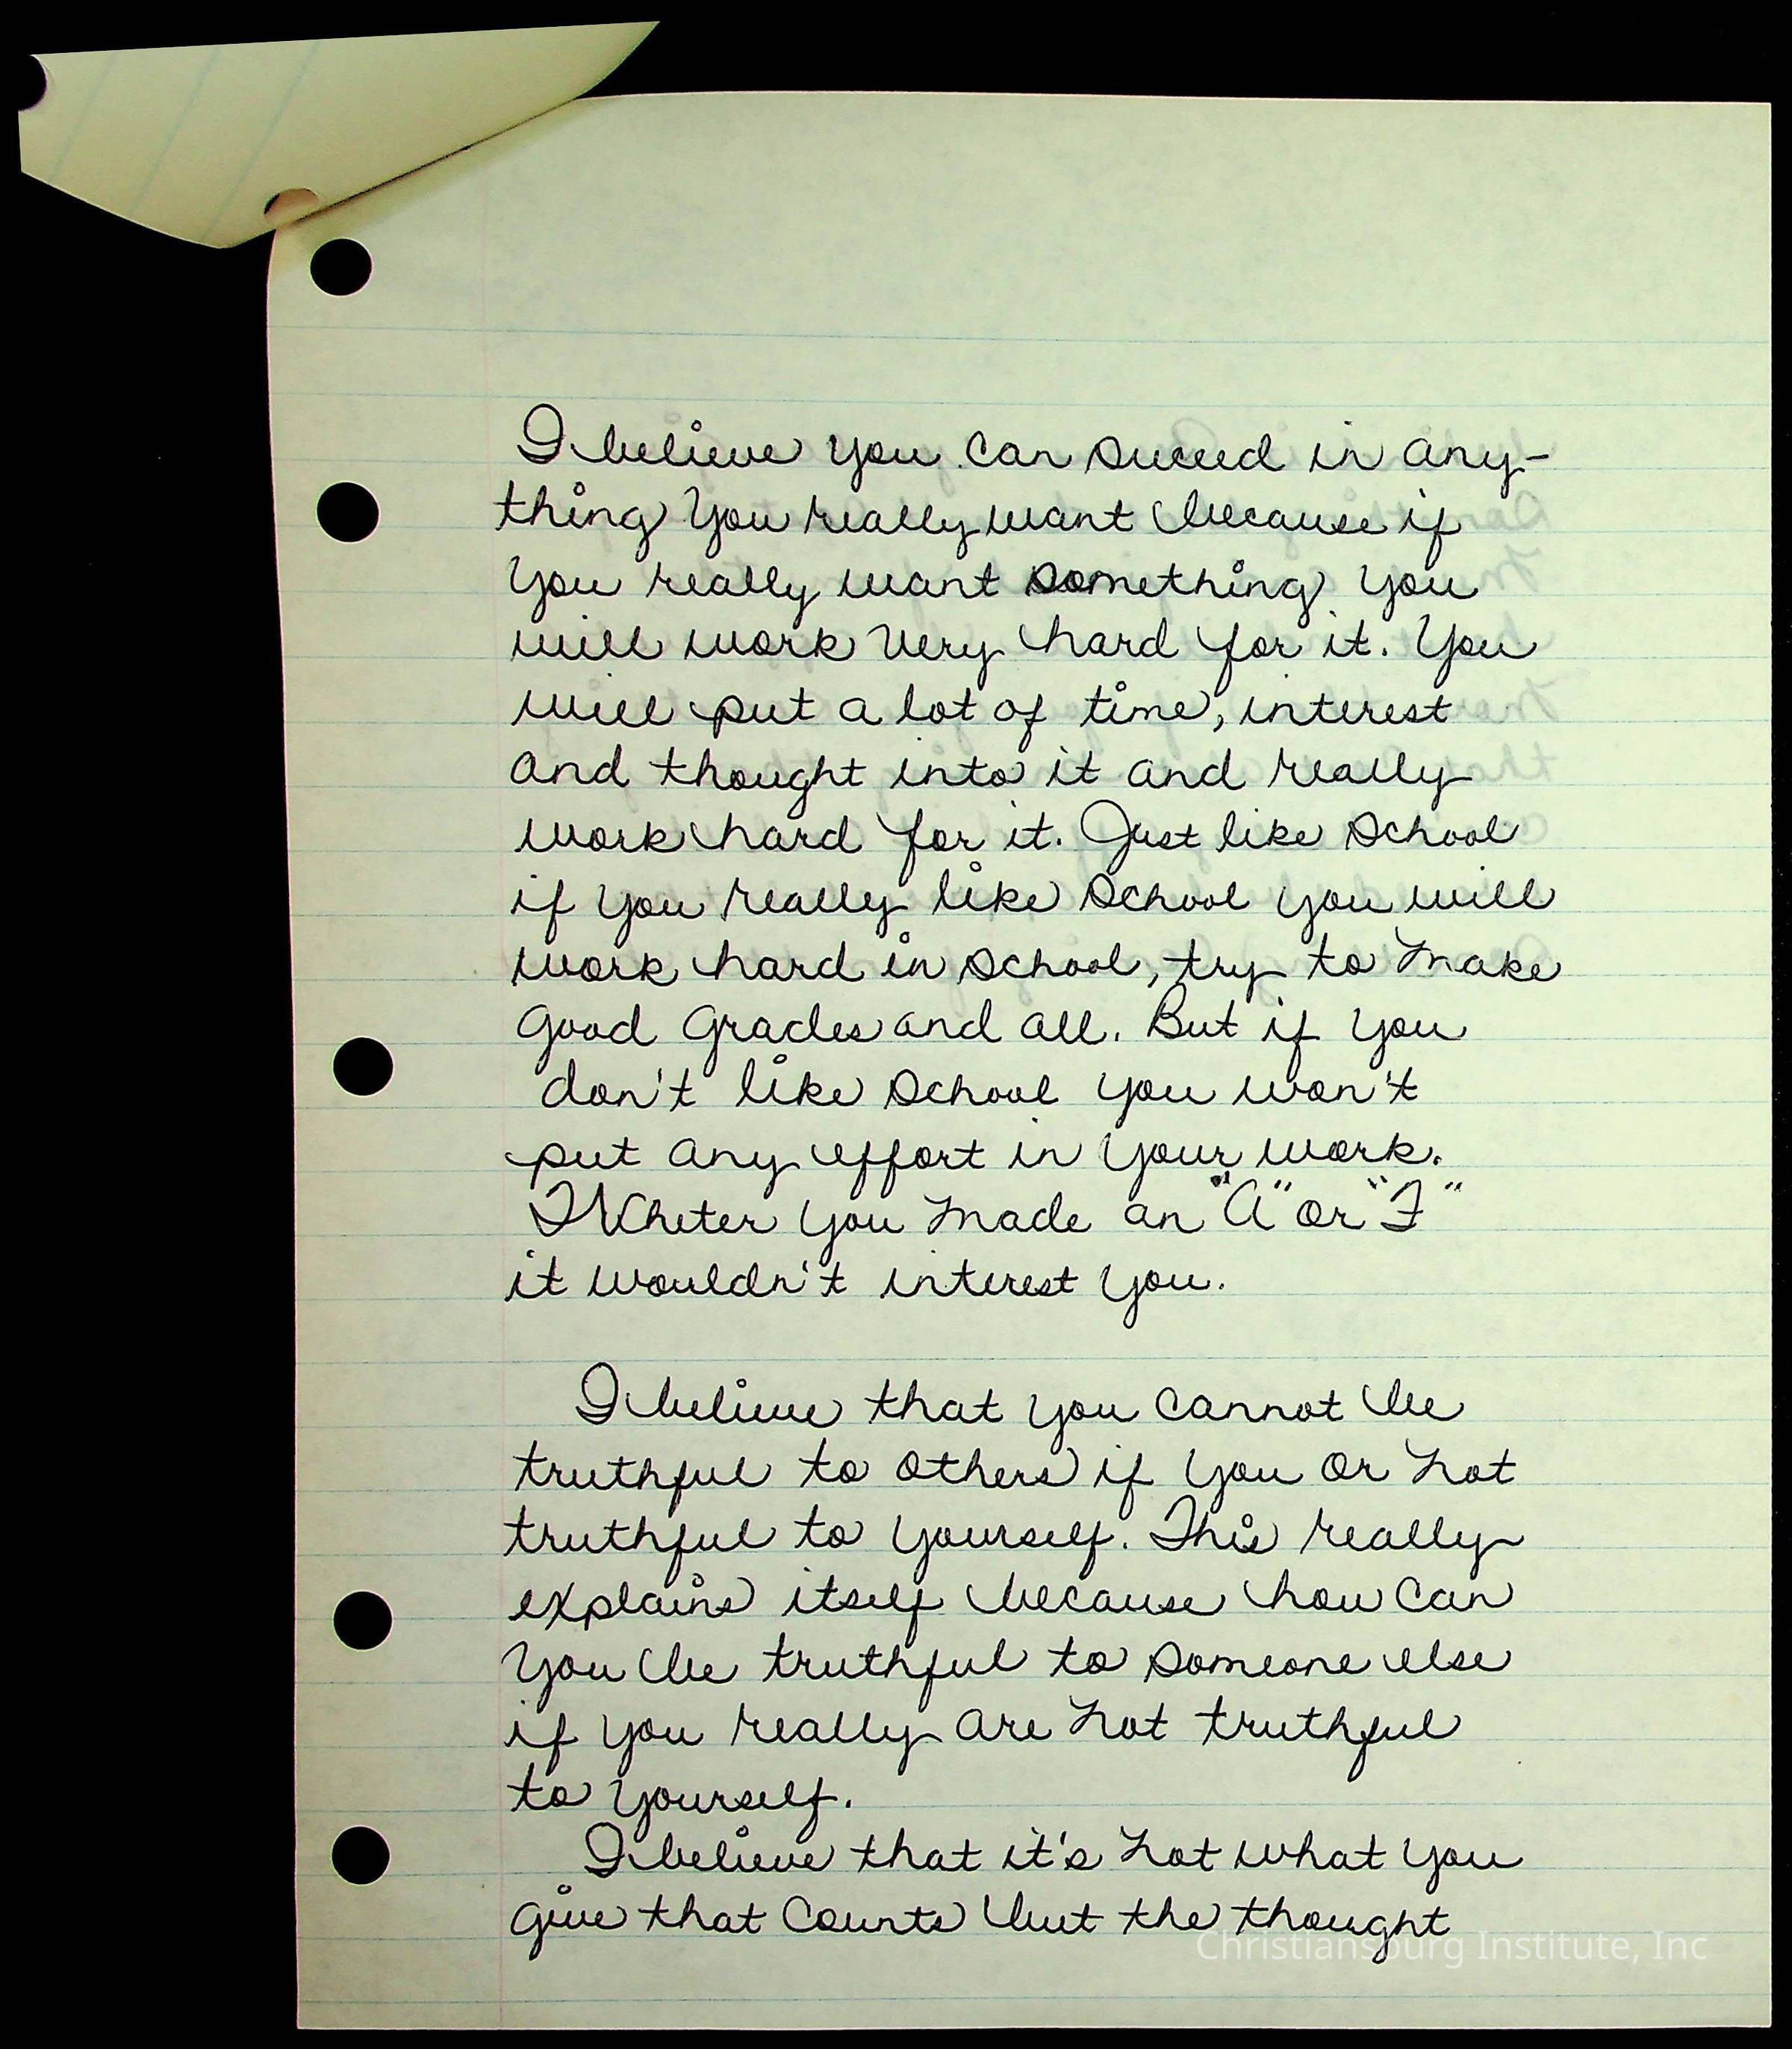 I believe you can suceed in any-
thing you really want because if
you really want something you
will work very hard for it. You
will put a lot of time, interest
and thought into it and really
work hard for it. Just like school
if you really like school you will
work hard in school, try to make
good grades and all. But if you
don't like school you won't
put any effort in your work.
Wheter you made an "A" or "F"
it wouldn't interest you.
I believe that you cannot be
truthful to others if you or not
truthful to yourself. This really
explains itself because how can
you be truthful to someone else
if you really are not truthful
to yourself.
I believe that it's not what you
give that counts but the thought
Christiansburg Institute, Inc